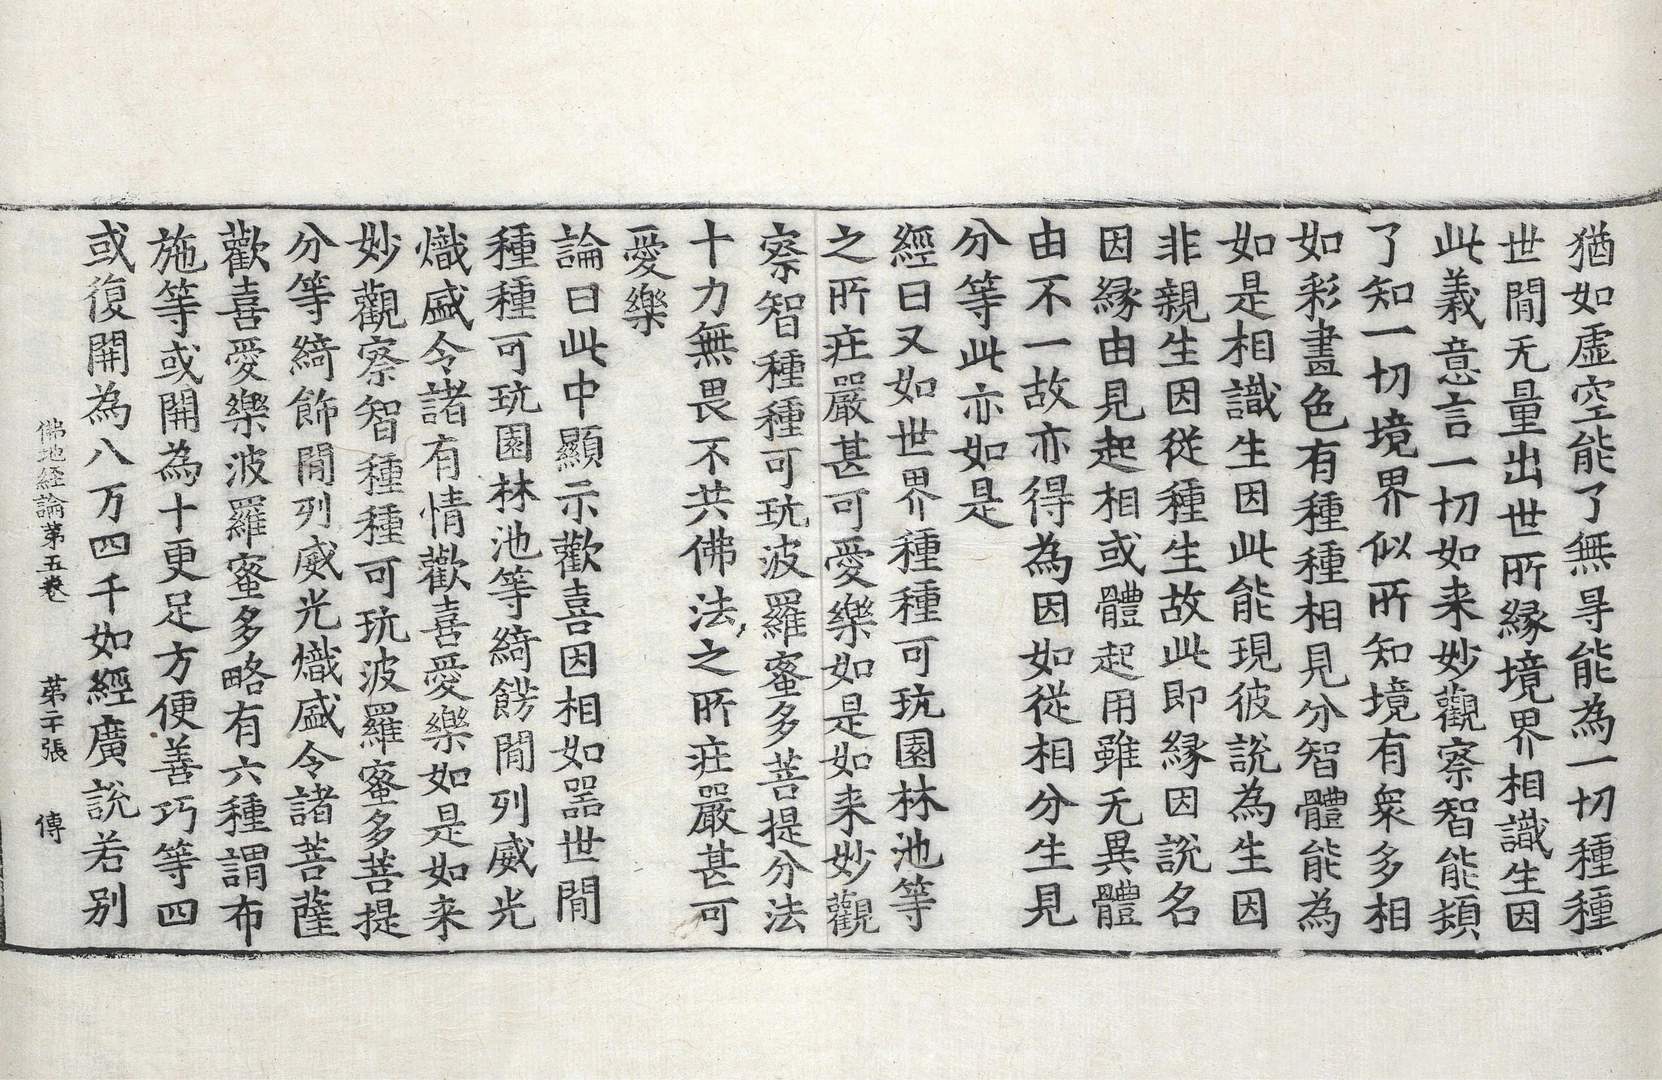 猶如虛空能了無㝵能為一切種種
世間无量出世所縁境界相識生因
此義意言一切如来妙觀察智能頓
了知一切境界似所知境有衆多相
如彩畫色有種種相見分智體能為
如是相識生因此能現彼說為生因
非親生因従種生故此即縁因說名
因縁由見起相或體起用雖无異體
由不一故亦得為因如従相分生見
分等此亦如是
經曰又如世界種種可玩園林池等
之所莊嚴甚可愛樂如是如来妙觀
察智種種可玩波羅蜜多菩提分法
十力無畏不共佛法之所莊嚴甚可
愛樂
論曰此中顯示歡喜因相如器世間
種種可玩園林池等綺飾間列威光
熾盛令諸有情歡喜愛樂如是如来
妙觀察智種種可玩波羅蜜多菩提
分等綺飾間列威光熾盛令諸菩薩
歡喜愛樂波羅蜜多略有六種謂布
施等或開為十更足方便善巧等四
或復開為八万四千如經廣說若別
佛地経論第五巻 第二十張 傳